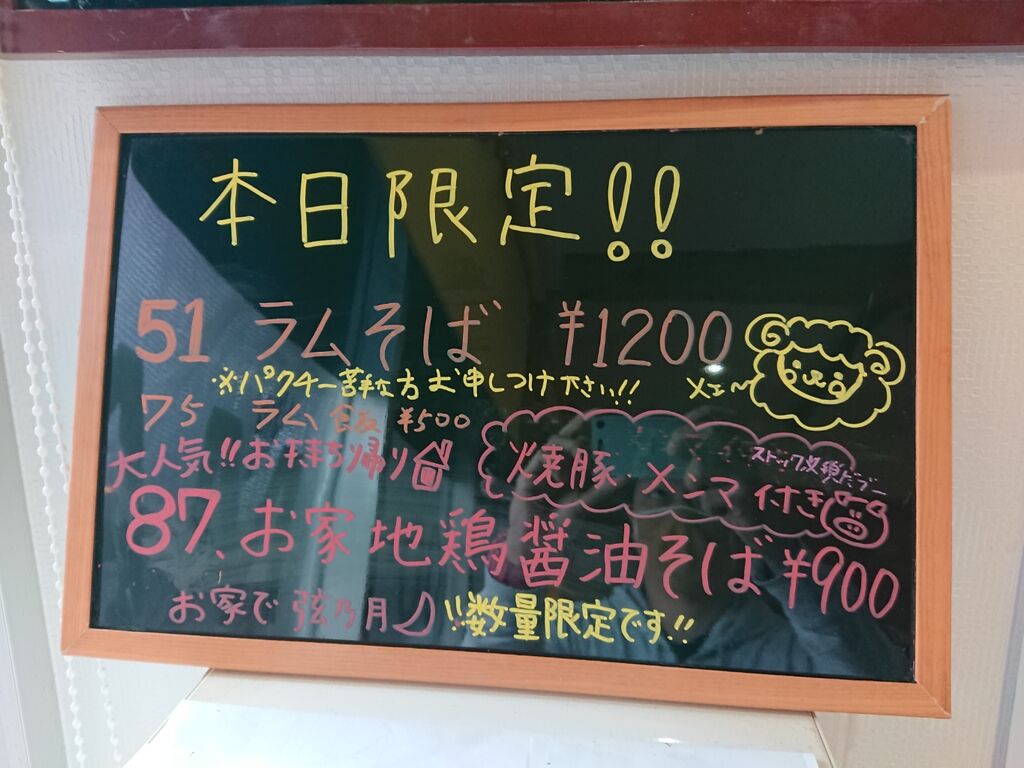 本日限定!!
51 ラムそば ¥1200
※パクチー苦手な方お申しつけ下さい!!
メェ〜
75 ラム飯 ¥500
大人気!!お持ち帰り
焼豚・メンマ付き
ストック必須だブー
87、お家地鶏醤油そば ¥900
お家で弦乃月
!!数量限定です!!